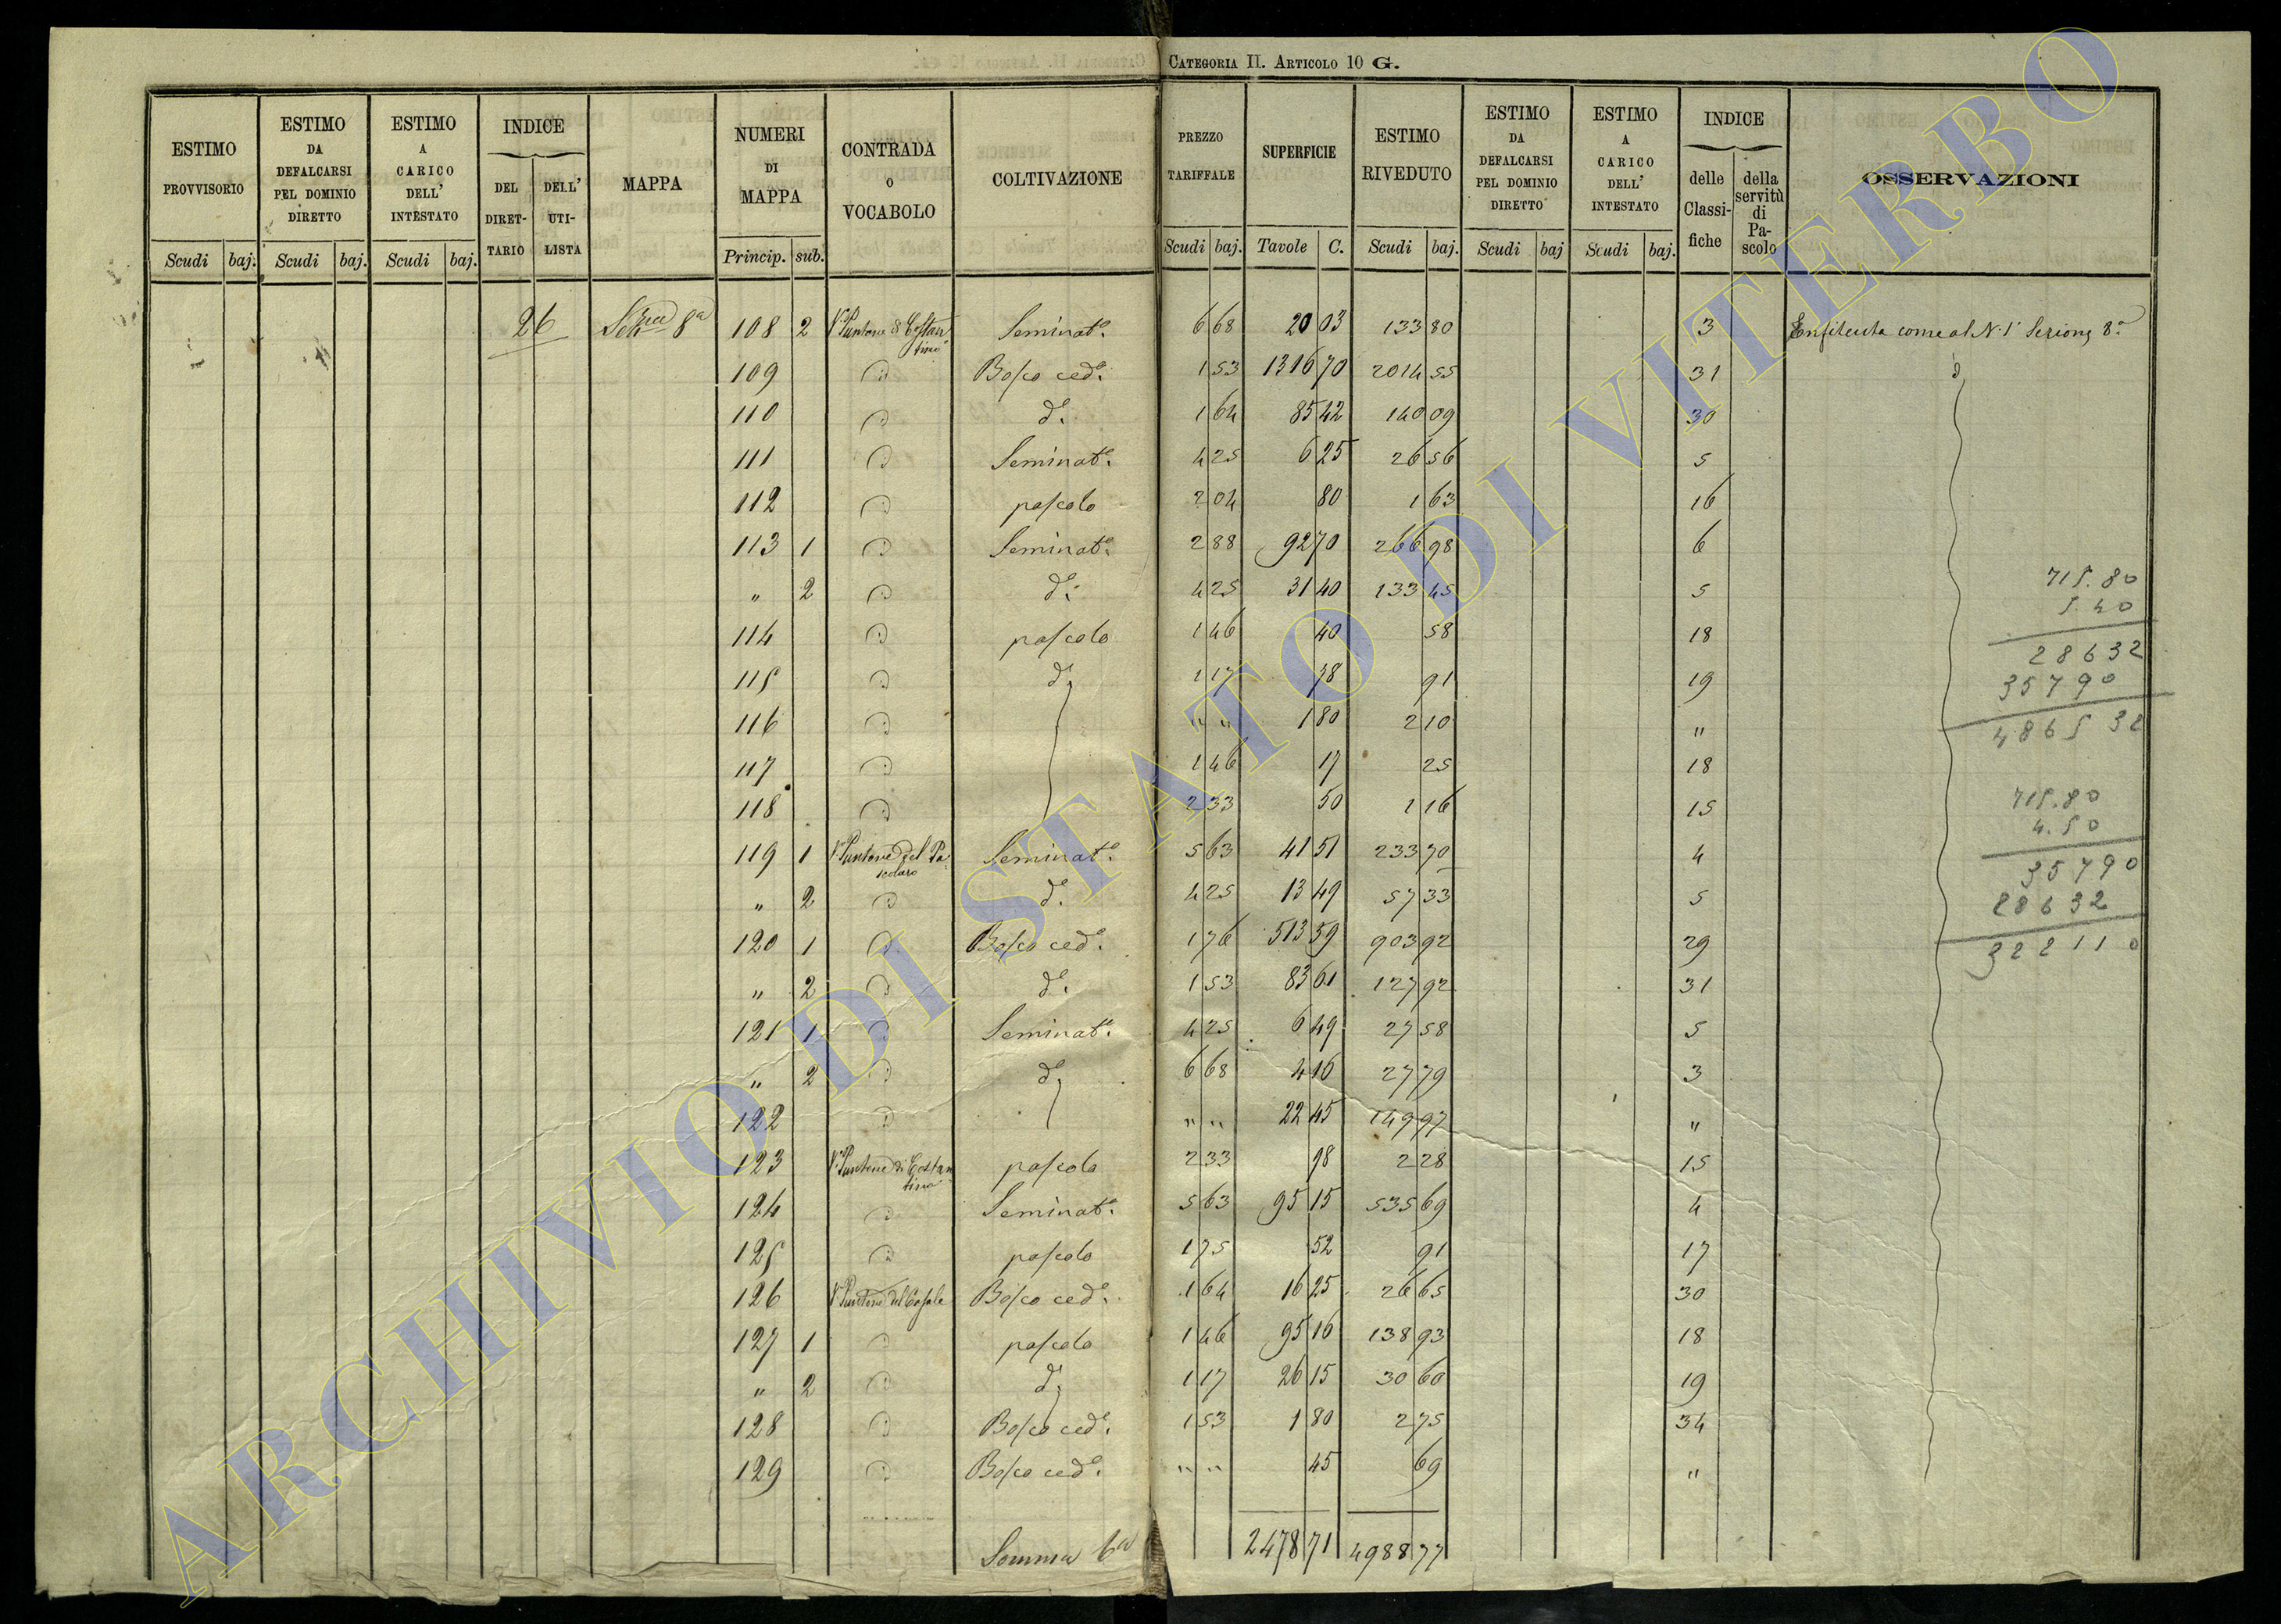 CATEGORIA II. ARTICOLO 10 G.
ESTIMO PROVVISORIO Scudi baj. ESTIMO DA DEFALCARSI PEL DOMINIO DIRETTO Scudi baj. ESTIMO A CARICO DELL' INTESTATO Scudi baj. INDICE DEL DIRET-TARIO DELL' UTI-LISTA MAPPA NUMERI DI MAPPA Princip. sub. CONTRADA O VOCABOLO COLTIVAZIONE PREZZO TARIFFALE Scudi baj. SUPERFICIE Tavole C. ESTIMO RIVEDUTO Scudi baj. ESTIMO DA DEFALCARSI PEL DOMINIO DIRETTO Scudi baj ESTIMO A CARICO DELL' INTESTATO Scudi baj. INDICE delle Classi-fiche della servitù di Pa-scolo OSSERVAZIONI
26 8a 108 2 Vo Puntone di Costantino Seminato. 6 68 20 03 133 80 3 Enfiteuta come al N. 1 Sezione 8a
109 Bosco cedo. 1 53 1316 70 2014 55 31 d
110 do. 1 64 85 42 140 09 30
111 Seminato. 4 25 6 25 26 56 5
112 pascolo 2 04 80 1 63 16
113 1 Seminato. 2 88 92 70 266 98 6
" 2 do. 4 25 31 40 133 45 5
114 pascolo 1 46 40 58 18
115 do 1 17 78 91 19
116 " " 1 80 2 10 "
117 1 46 17 25 18
118 2 33 50 1 16 15
119 1 Vo Puntone del Pascolaro Seminato. 5 63 41 51 233 70 4
" 2 do. 4 25 13 49 57 33 5
120 1 Bosco cedo. 1 76 513 59 903 92 29
" 2 do. 1 53 83 61 127 92 31
121 1 Seminato. 4 25 6 49 27 58 5
" 2 do 6 68 4 16 27 79 3
122 " " 22 45 149 97 "
123 Vo Puntone di Costantino pascolo 2 33 98 2 28 15
124 Seminato. 5 63 95 15 535 69 4
125 pascolo 1 75 52 91 17
126 Vo Puntone del Casale Bosco cedo. 1 64 16 25 26 65 30
127 1 pascolo 1 46 95 16 138 93 18
" 2 do 1 17 26 15 30 60 19
128 Bosco cedo. 1 53 1 80 2 75 31
129 Bosco cedo. " " 45 69 "
Somma 6a 2478 71 4988 77
715.80
5.40
28632
35790
4865 32
715.80
4.50
35790
28632
322110
ARCHIVIO DI STATO DI VITERBO